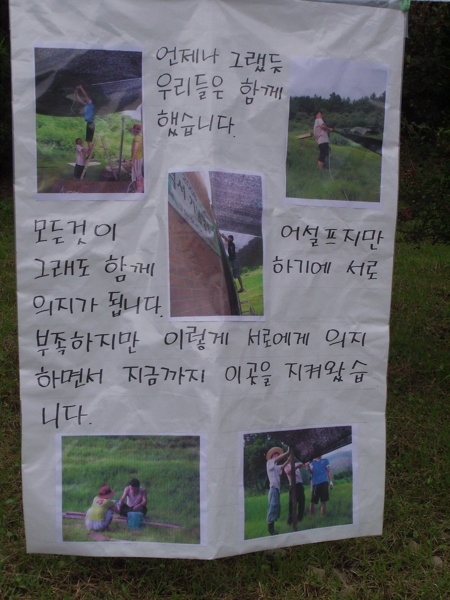 언제나 그랬듯
우리들은 함께
했습니다.
모든것이 어설프지만
그래도 함께 하기에 서로
의지가 됩니다.
부족하지만 이렇게 서로에게 의지
하면서 지금까지 이곳을 지켜왔습
니다.